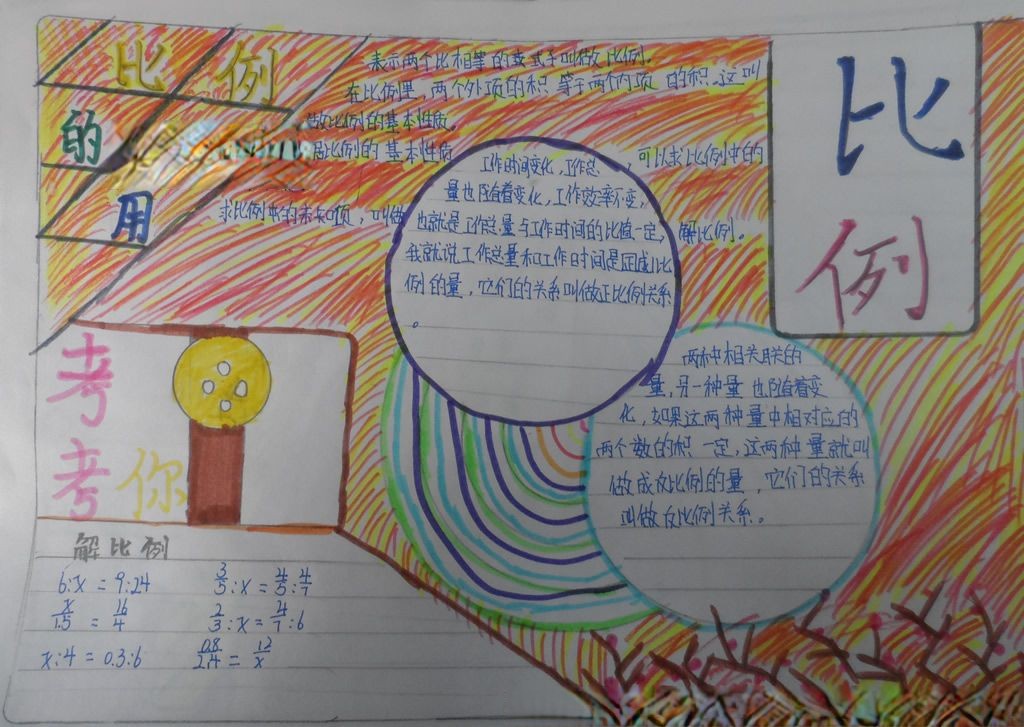 比例
的
用
表示两个比相等的式子叫做比例。
在比例里，两个外项的积等于两个内项的积。这叫
做比例的基本性质。
比例的基本性质，可以求比例中的
求比例中的未知项，叫做解比例。
比
例
工作时间变化，工作总
量也随着变化，工作效率不变，
也就是工作总量与工作时间的比值一定，
我就说工作总量和工作时间是正成比
例的量，它们的关系叫做正比例关系
。
两种相关联的
量，另一种量也随着变
化，如果这两种量中相对应的
两个数的积一定，这两种量就叫
做成反比例的量，它们的关系
叫做反比例关系。
考
考你
解比例
6:x = 9:24
3/5:x = 4/5:4/7
x/1.5 = 16/4
2/3:x = 4/7:6
x:4 = 0.3:6
0.8/2.4 = 12/x